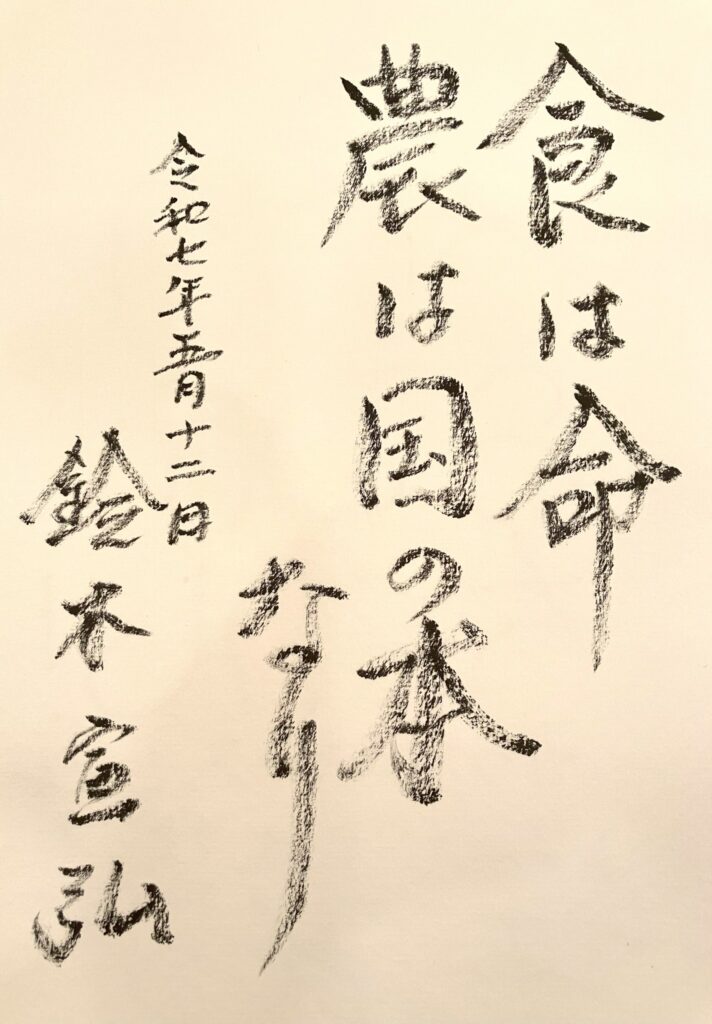 食は命
農は国の本
なり
令和七年五月十二日
鈴木宣弘